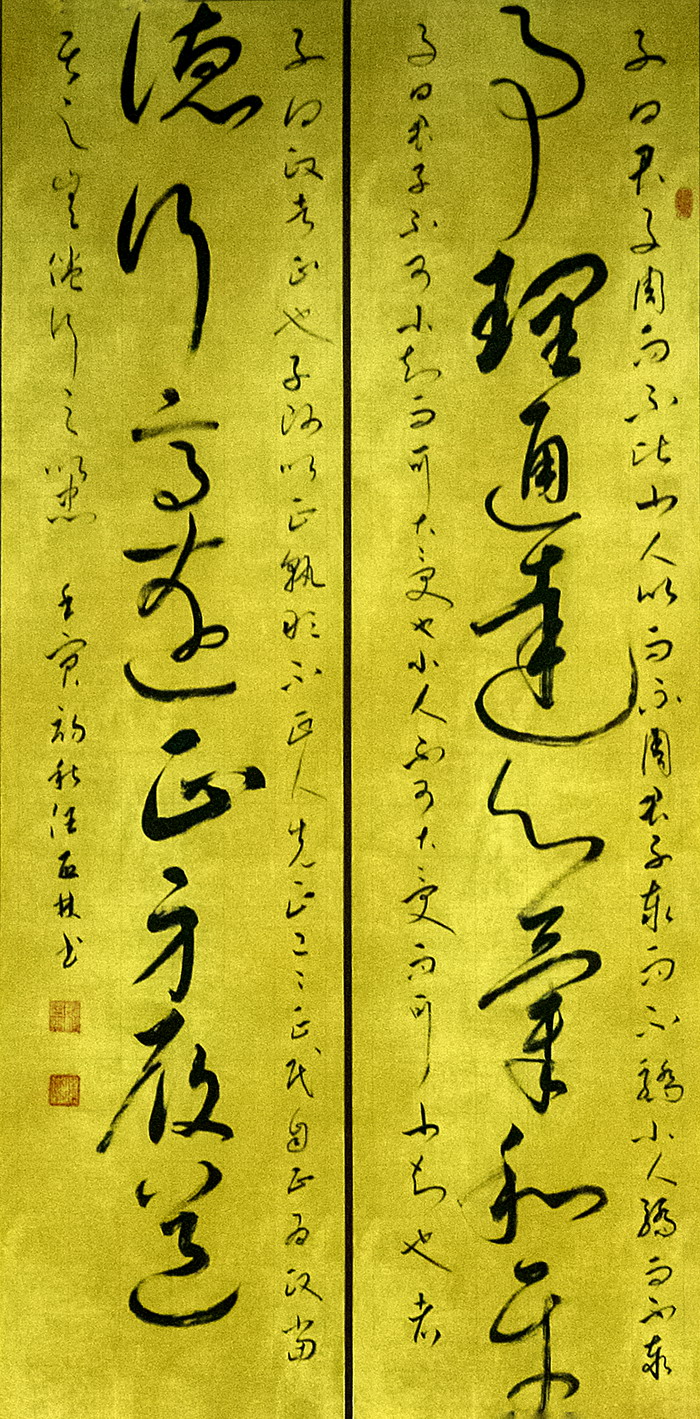 子曰君子周而不比小人比而不周君子泰而不驕小人驕而不泰
事理通達心氣和平
子曰君子不可小知而可大受也小人不可大受而可小知也者
子曰政者正也子帥以正孰敢不正人先正己〻正民自正為政當
德行高邁正身履道
居之無倦行之以忠 壬寅初秋汪石林書